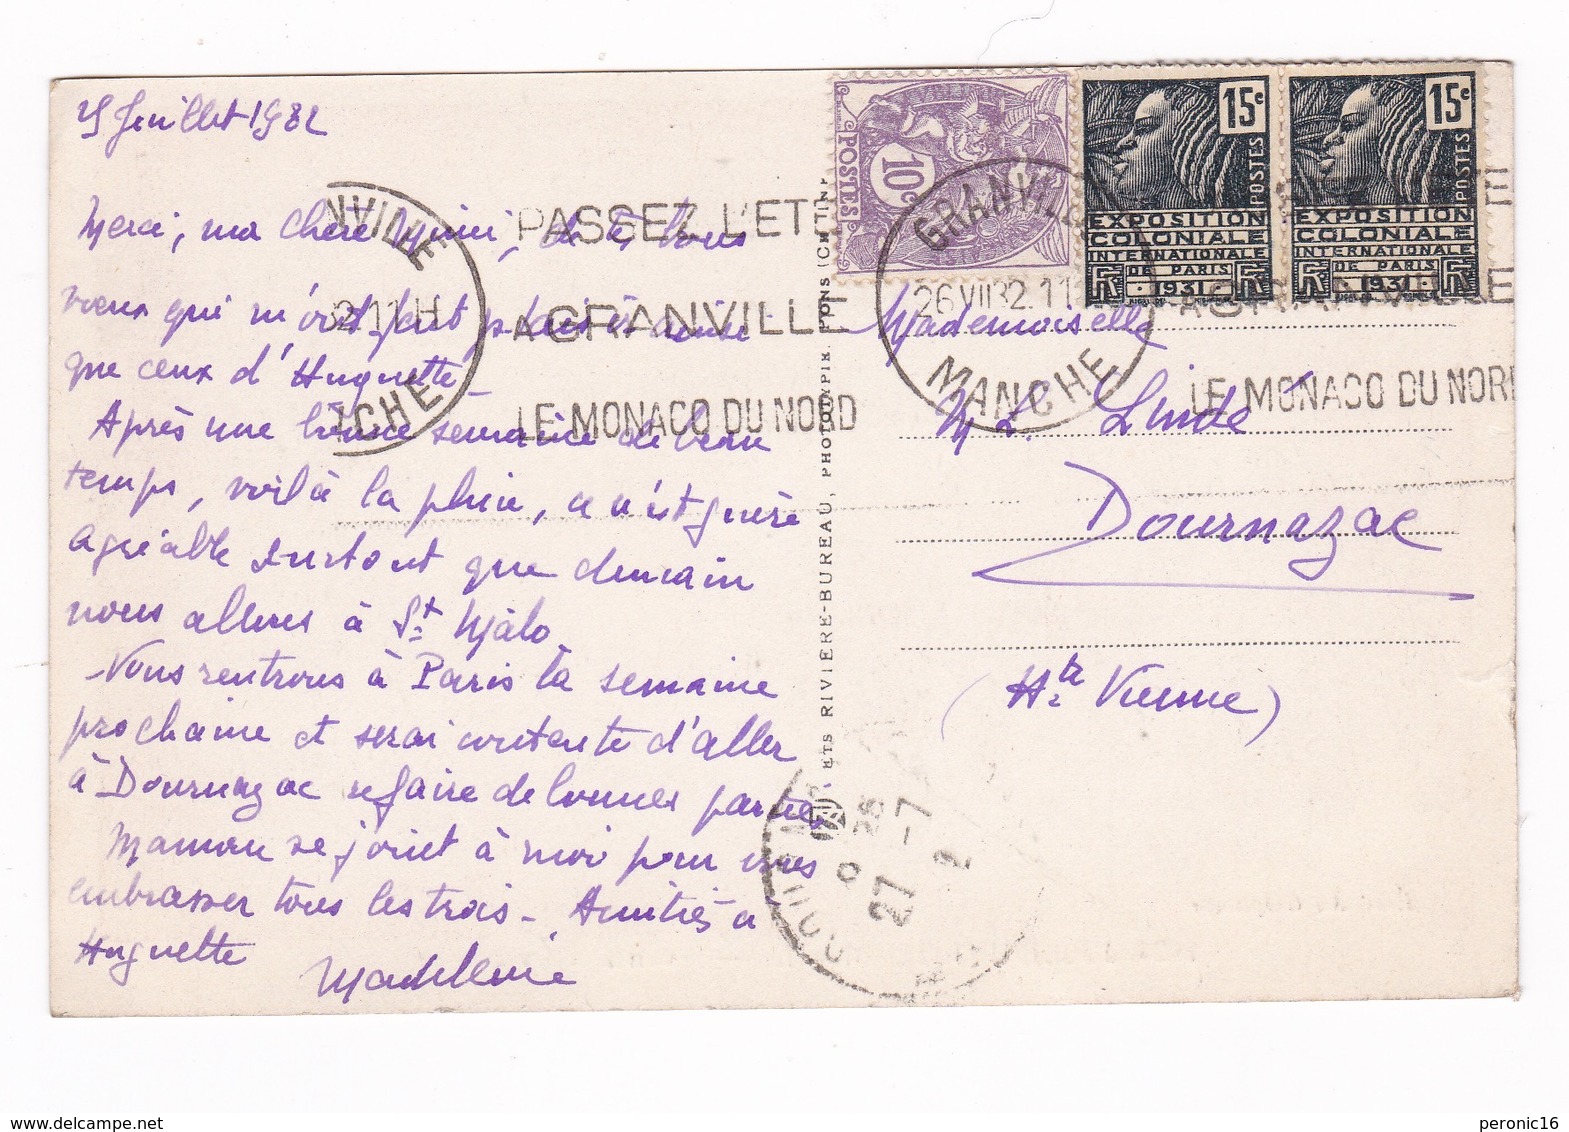 Juillet 1932
Merci, ma chère Mimi, de tes bons
voeux qui m'ont fait plaisir ainsi
que ceux d'Huguette
Après une bonne semaine de beau
temps, voilà la pluie, ce n'est guère
agréable surtout que demain
nous allons à St Malo.
Nous rentrons à Paris la semaine
prochaine et serai contente d'aller
à Dournazac refaire de bonnes parties
Maman se joint à moi pour vous
embrasser tous les trois - Amitiés à
Huguette
Madeleine
NVILLE
3211H
CHE
PASSEZ L'ETE
A GRANVILLE
LE MONACO DU NORD
ETS RIVIERE-BUREAU, PHOTOTYPIE, PONS (CH-TINF
10c
POSTES
GRANVILLE
26 VII 32.11
MANCHE
15c
POSTES
EXPOSITION
COLONIALE
INTERNATIONALE
DE PARIS
RF 1931 RF
15c
POSTES
EXPOSITION
COLONIALE
INTERNATIONALE
DE PARIS
RF 1931 RF
A GRANVILLE
LE MONACO DU NORD
Mademoiselle
M. L. Lindé
Dournazac
(Hte Vienne)
27 -7
peronic16